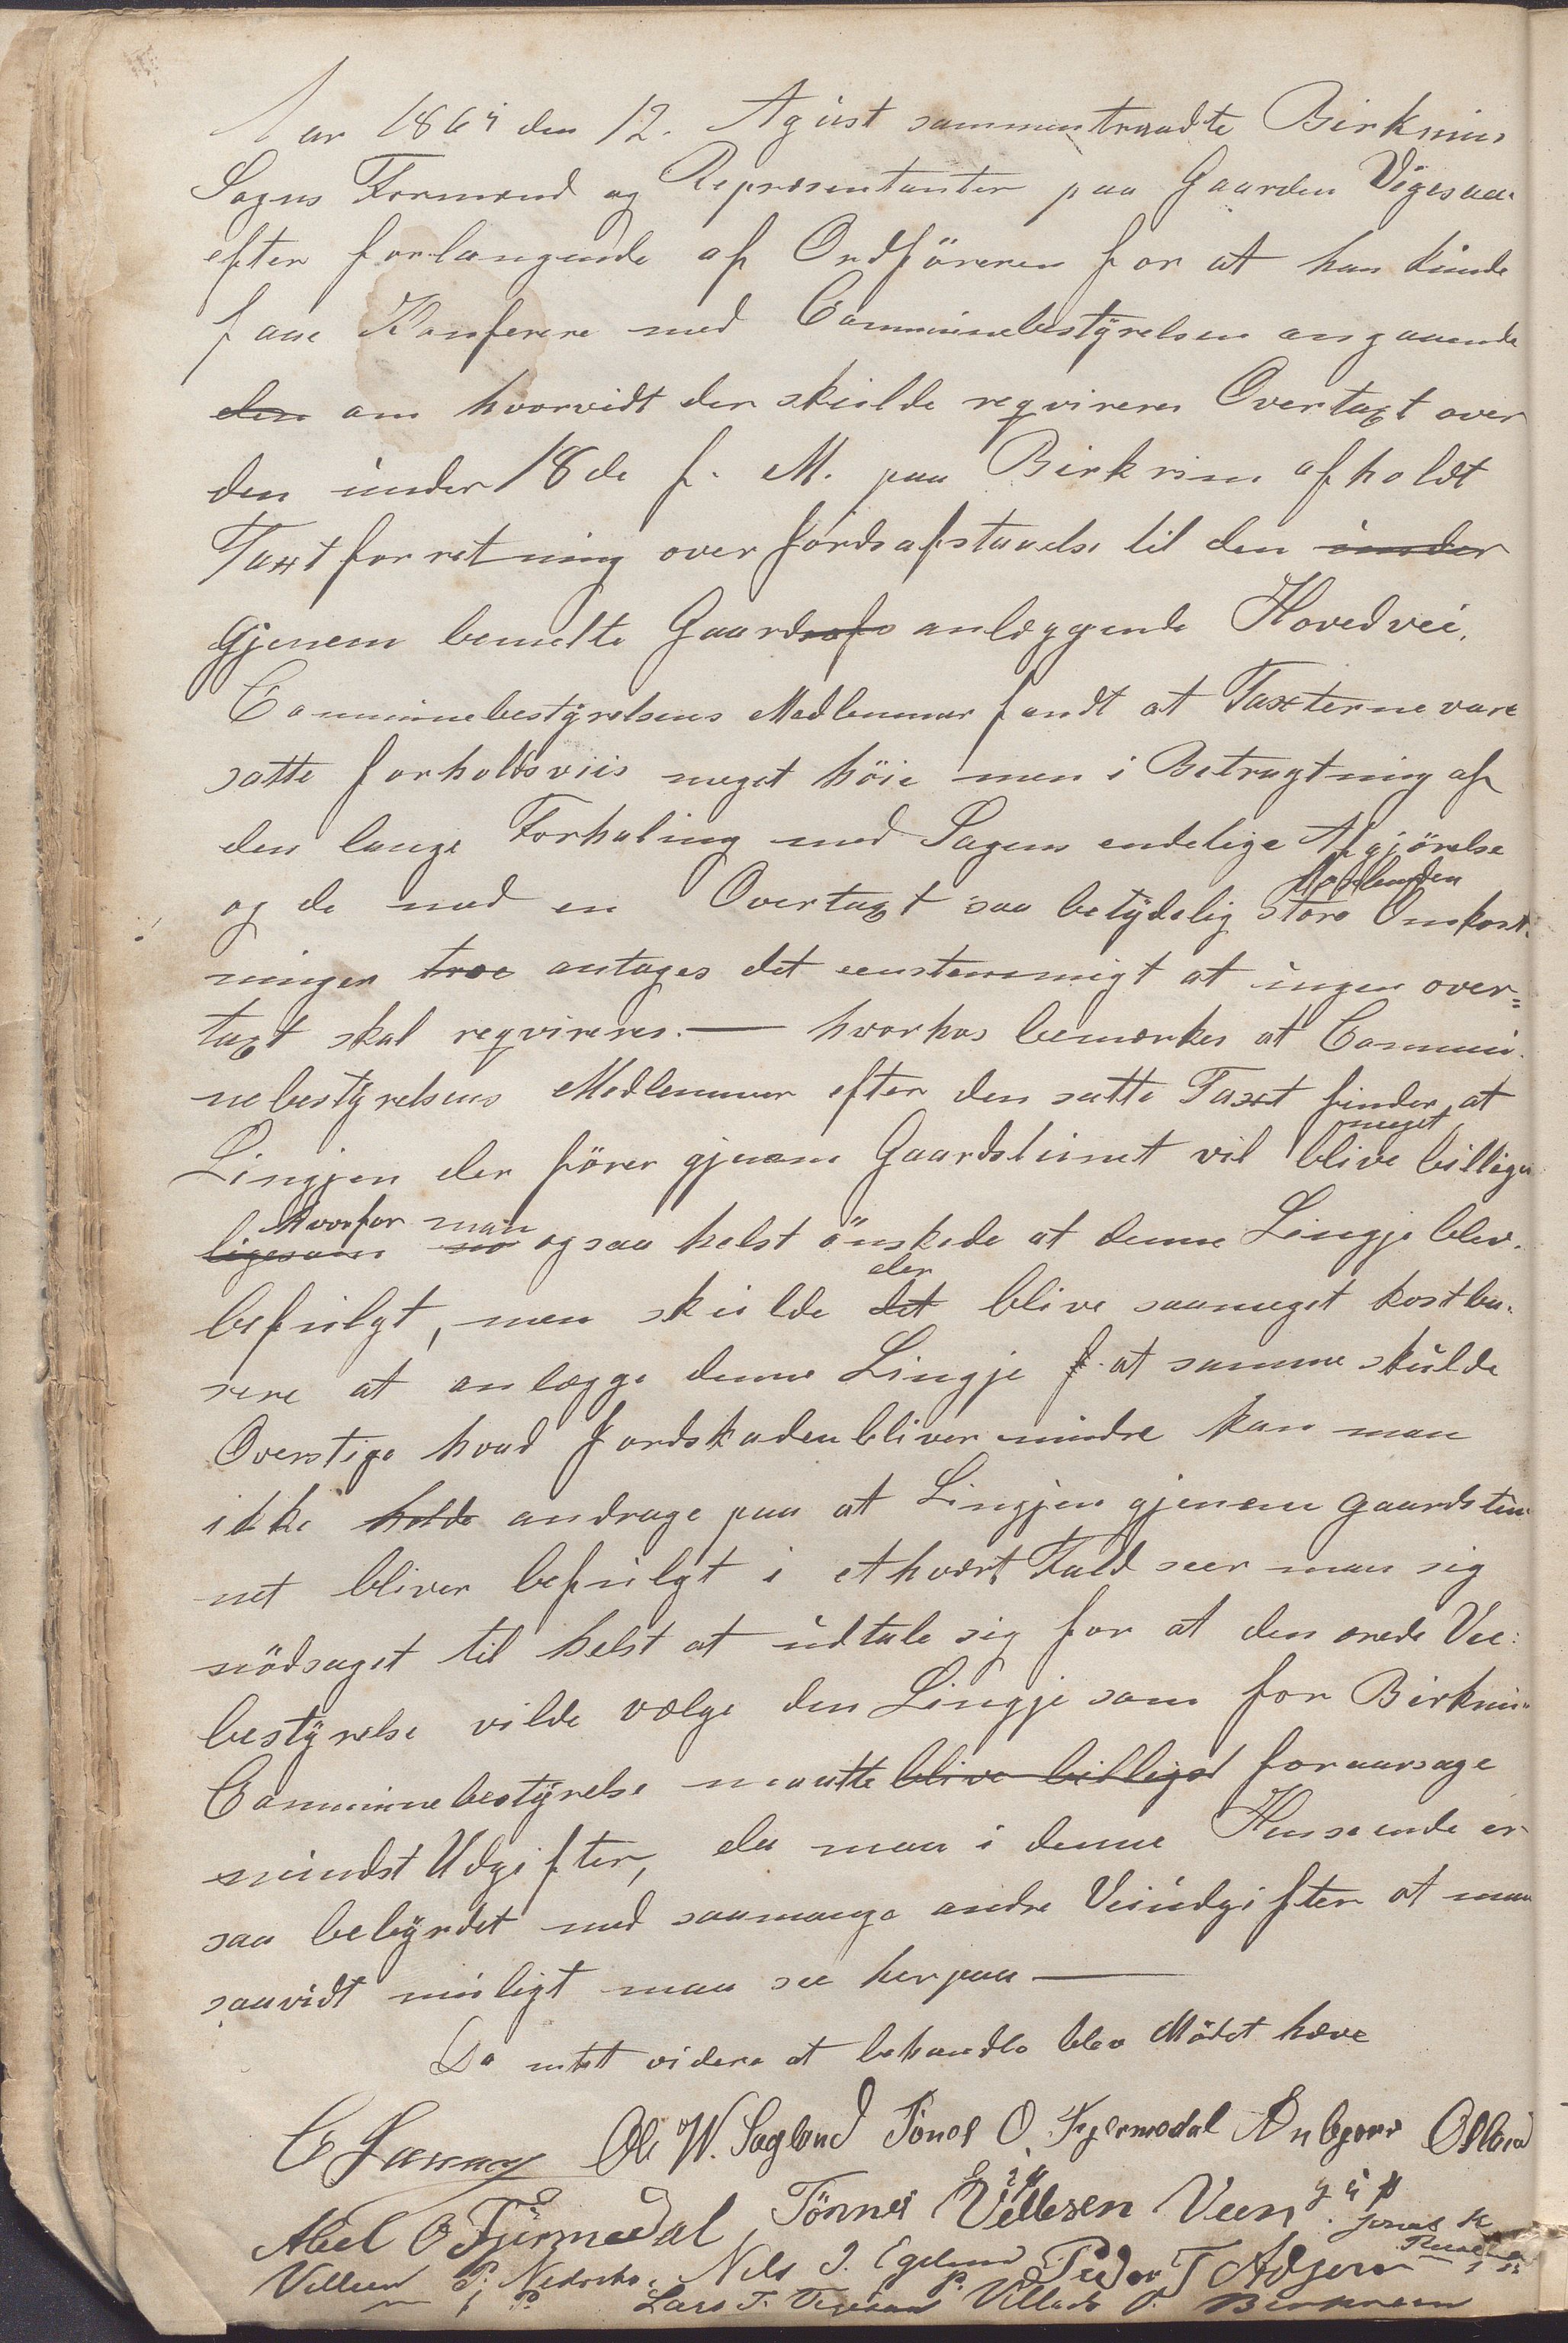 Aar 1869 den 12. Agust sammentraadte Birkrims
Sogns Formænd og Repræsentanter paa Gaarden Vigesaa
efter forlangende af Ordföreren for at han kunde
faae Konferere med Communebestyrelsen angaaende
den om hvorvidt der skulde reqvireres Overtaxt over
den under 18de f. M. paa Birkrim afholdt
Taxtforretning over Jordsafstaaelse til den under
Gjenem bemelte Gaards anlæggende Hovedvei.
Communebestyrelsens Medlemmer fandt at Taxterne vare
satte forholdsviis meget höie men i Betragtning af
den lange Forhaling med Sagens endelige Afgjörelse
og de med en Overtaxt saa betydelig store Omkost-
ninger antages det eenstemmigt at ingen over=
taxt skal reqvireres. — hvorhos bemærkes at Commu-
nebestyrelsens Medlemmer efter den satte Taxt finder at
Lingjen der förer gjenem Gaardstunet vil meget blive billiger
ligesom hvorfor man ogsaa helst önskede at denne Lingje blev
befulgt, men skulde det der blive saameget kostba-
rere at anlægge denne Lingje at samme skulde
Overstige hvad Jordskaden bliver mindre kan man
ikke holde andrage paa at Lingjen gjenem gaardstu-
net bliver befulgt i ethvert Fald seer man sig
nödsaget til helst at udtale sig for at den ærede Vei-
bestyrelse vilde vælge den Lingje som for Birkrims
Communebestyrelse maatte blive billigst foraarsage
mindst Udgifter, da man i denne Henseende er
saa bebyrdet med saamange andre Veiudgifter at man
saavidt muligt maa see herpaa —
Da intet videre at behandle blev Mödet hæve
Ole W. Sagland Tönes O. Fjermedal
Abel O Fjermedal Tönnes Villesen Veen
Nils J. Egeland Peder T Adjern
Lars T. Vigesaa Villads P. Berkreim